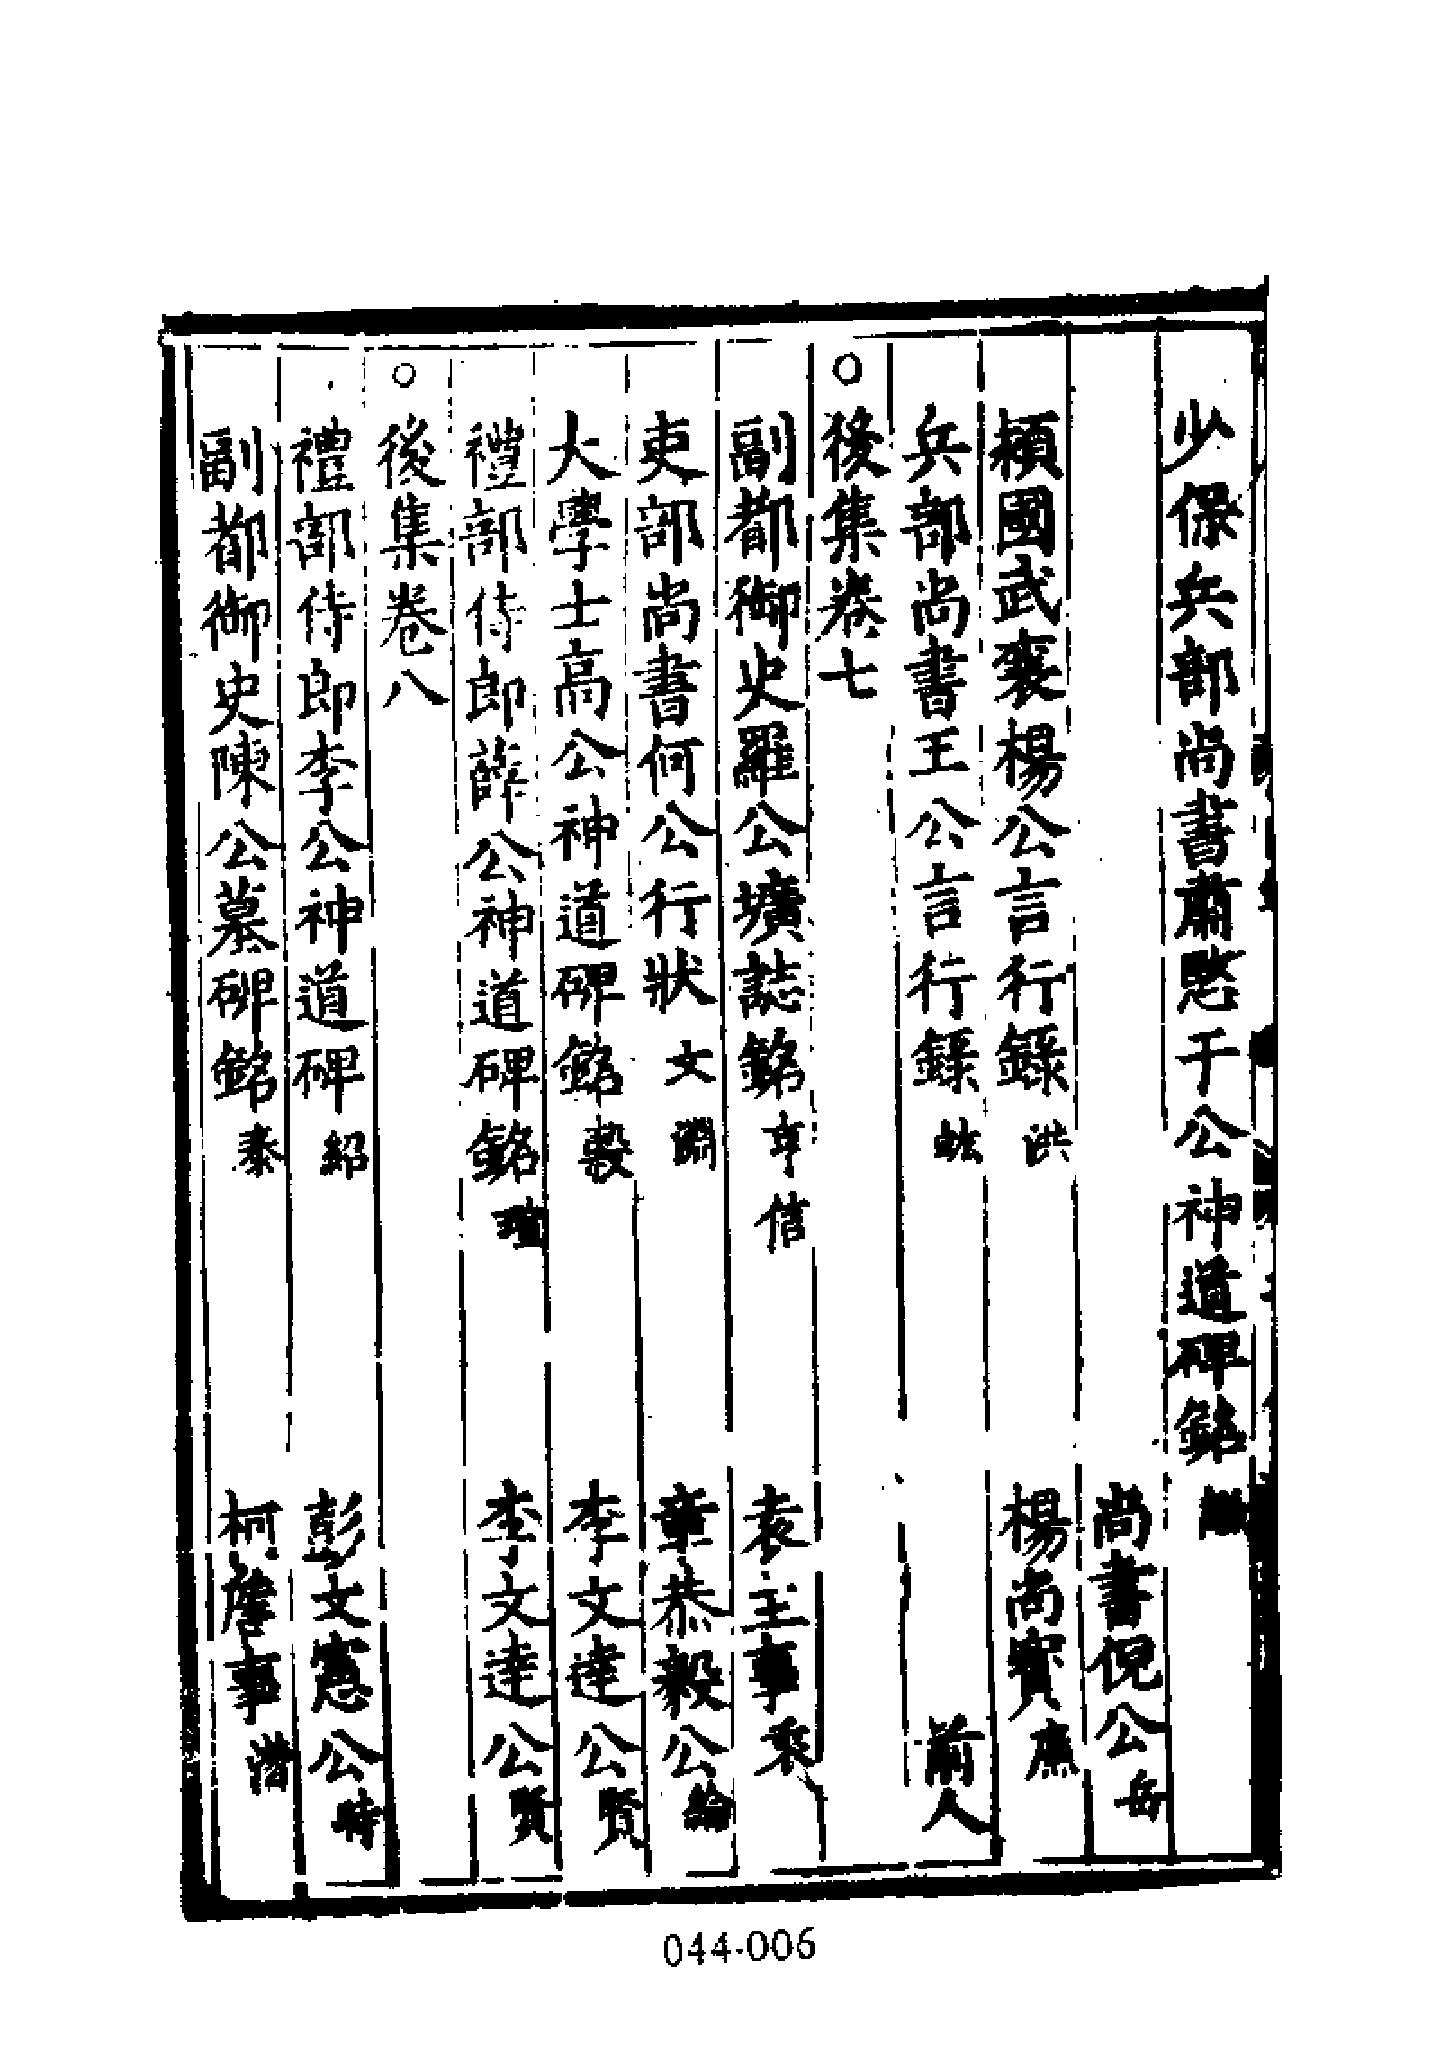 少保兵部尚書肅愍于公神道碑銘
尚書倪公岳
穎國武襄楊公言行錄洪 楊尚寶廉
兵部尚書王公言行錄竑 前人
○後集卷七
副都御史羅公壙誌銘亨信 袁主事衷
吏部尚書何公行狀文淵 章恭毅公綸
大學士高公神道碑銘穀 李文達公賢
禮部侍郎薛公神道碑銘瑄 李文達公賢
○後集卷八
禮部侍郎李公神道碑紹 彭文憲公時
副都御史陳公墓碑銘泰 柯詹事潛
044-006